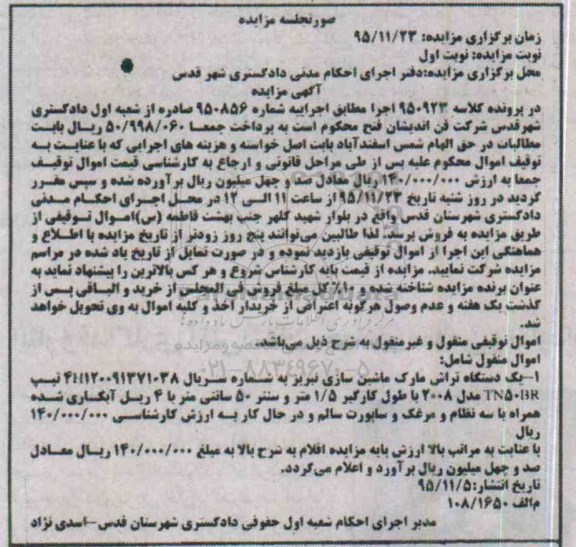 صورتجلسه مزایده
زمان برگزاری مزایده: ۹۵/۱۱/۲۳
نوبت مزایده: نوبت اول
محل برگزاری مزایده:دفتر اجرای احکام مدنی دادگستری شهر قدس
آگهی مزایده
در پرونده کلاسه ۹۵۰۹۲۳ اجرا مطابق اجراییه شماره ۹۵۰۸۵۶ صادره از شعبه اول دادگستری
شهرقدس شرکت فن اندیشان فتح محکوم است به پرداخت جمعا ۵۰/۹۹۸/۰۶۰ ریال بابت
مطالبات در حق الهام شمس اسفندآباد بابت اصل خواسته و هزینه های اجرایی که با عنایت به
توقیف اموال محکوم علیه پس از طی مراحل قانونی و ارجاع به کارشناسی قیمت اموال توقیف
جمعا به ارزش ۱۴۰/۰۰۰/۰۰۰ ریال معادل صد و چهل میلیون ریال برآورده شده و سپس مقرر
گردید در روز شنبه تاریخ ۹۵/۱۱/۲۳ از ساعت ۱۱ الی ۱۲ در محل اجرای احکام مدنی
دادگستری شهرستان قدس واقع در بلوار شهید کلهر جنب بهشت فاطمه (س)اموال توقیفی از
طریق مزایده به فروش برسد. لذا طالبین می‌توانند پنج روز زودتر از تاریخ مزایده با اطلاع و
هماهنگی این اجرا از اموال توقیفی بازدید نموده و در صورت تمایل از تاریخ یاد شده در مراسم
مزایده شرکت نمایید. مزایده از قیمت پایه کارشناس شروع و هر کس بالاترین را پیشنهاد نماید به
عنوان برنده مزایده شناخته شده و ۱۰٪ کل مبلغ فروش فی المجلس از خرید و الباقی پس از
گذشت یک هفته و عدم وصول هرگونه اعتراض از خریدار اخذ و کلیه اموال به وی تحویل خواهد
شد.
اموال توقیفی منقول و غیرمنقول به شرح ذیل می‌باشد.
اموال منقول شامل:
۱-یک دستگاه تراش مارک ماشین سازی تبریز به شماره سریال ۴H۱۲۰۰۹۱۳۷۱۰۳۸ تیپ
TN۵۰BR مدل ۲۰۰۸ با طول کارگیر ۱/۵ متر و سنتر ۵۰ سانتی متر با ۴ ریل آبکاری شده
همراه با سه نظام و مرغک و ساپورت سالم و در حال کار به ارزش کارشناسی ۱۴۰/۰۰۰/۰۰۰
ریال
با عنایت به مراتب بالا ارزش پایه مزایده اقلام به شرح بالا به مبلغ ۱۴۰/۰۰۰/۰۰۰ ریال معادل
صد و چهل میلیون ریال برآورد و اعلام می‌گردد.
تاریخ انتشار:۹۵/۱۱/۵
م‌الف ۱۰۸/۱۶۵۰
مدیر اجرای احکام شعبه اول حقوقی دادگستری شهرستان قدس-اسدی نژاد
۰۲۱-۸۸۳۴۹۶۷۰-۵